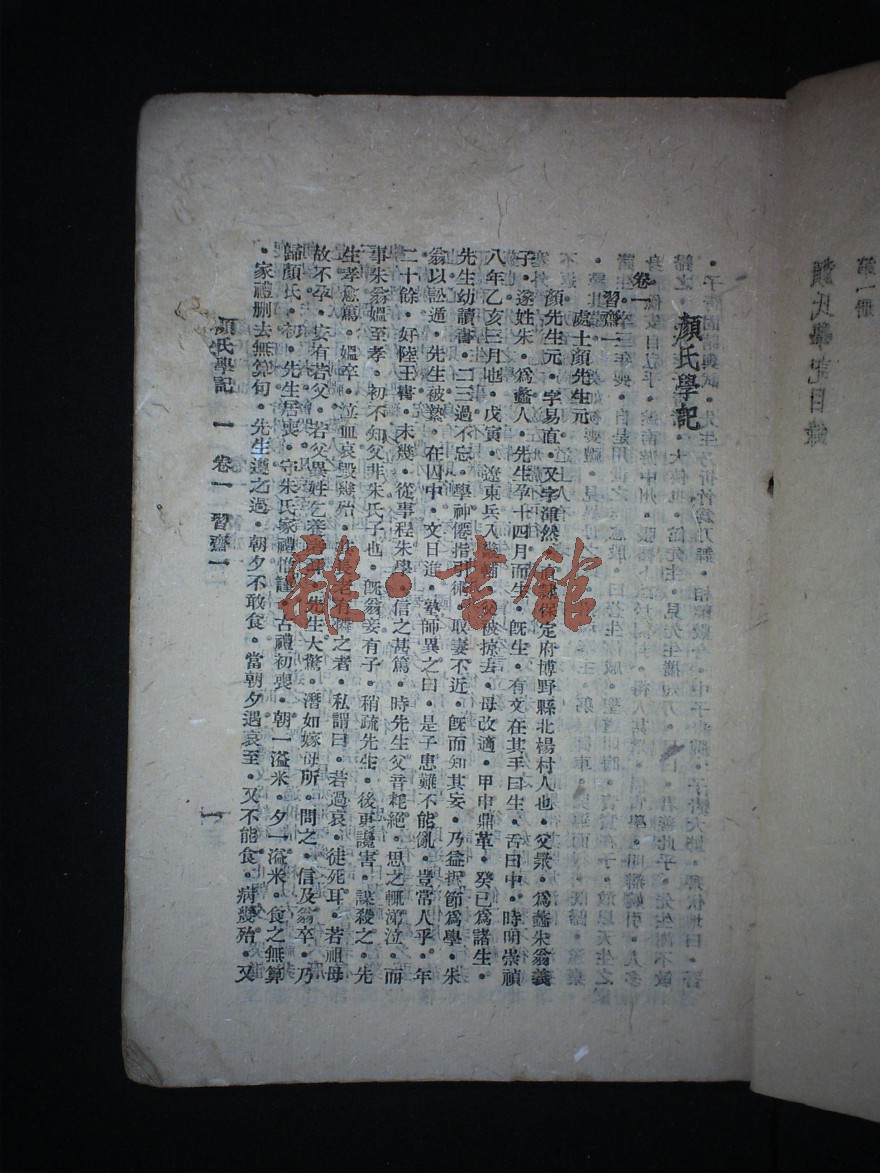 第一冊
顏氏學記目錄
顏氏學記
卷一
習齋一
處士顏先生元
顏先生元・字易直・又字渾然・直隸保定府博野縣北楊村人也・父㫤・爲蠡朱翁義
子・遂姓朱・爲蠡人・先生孕十四月而生・旣生・有文在其手曰生・舌曰中・時明崇禎
八年乙亥三月也・戊寅・遼東兵入畿輔・父被掠去・母改適・甲申鼎革・癸巳爲諸生・
先生幼讀書・二三過不忘・學神僊指引術・取妻不近・旣而知其妄・乃益折節爲學・朱
翁以訟遁・先生被縶・在囚中・文日進・塾師異之曰・是子患難不能亂・豈常人乎・年
二十餘・好陸王書・未幾・從事程朱學・信之甚篤・時先生父音耗絕・思之輒涕泣・而
事朱翁媼至孝・初不知父非朱氏子也・旣翁妾有子・稍疏先生・後更讒害・謀殺之・先
生孝愈篤・媼卒・泣血哀毀幾殆・朱長老有憐之者・私謂曰・若過哀・徒死耳・若祖母
故不孕・安有若父・若父異姓乞養者耳・先生大驚・潛如嫁母所・問之・信及翁卒・乃
歸顏氏・初・先生居喪・守朱氏家禮惟謹・古禮初喪・朝一溢米・夕一溢米・食之無算
・家禮刪去無算句・先生遵之過・朝夕不敢食・當朝夕遇哀至・又不能食・病幾殆・又
顏氏學記 一 卷一 習齋一
一
雜・書館